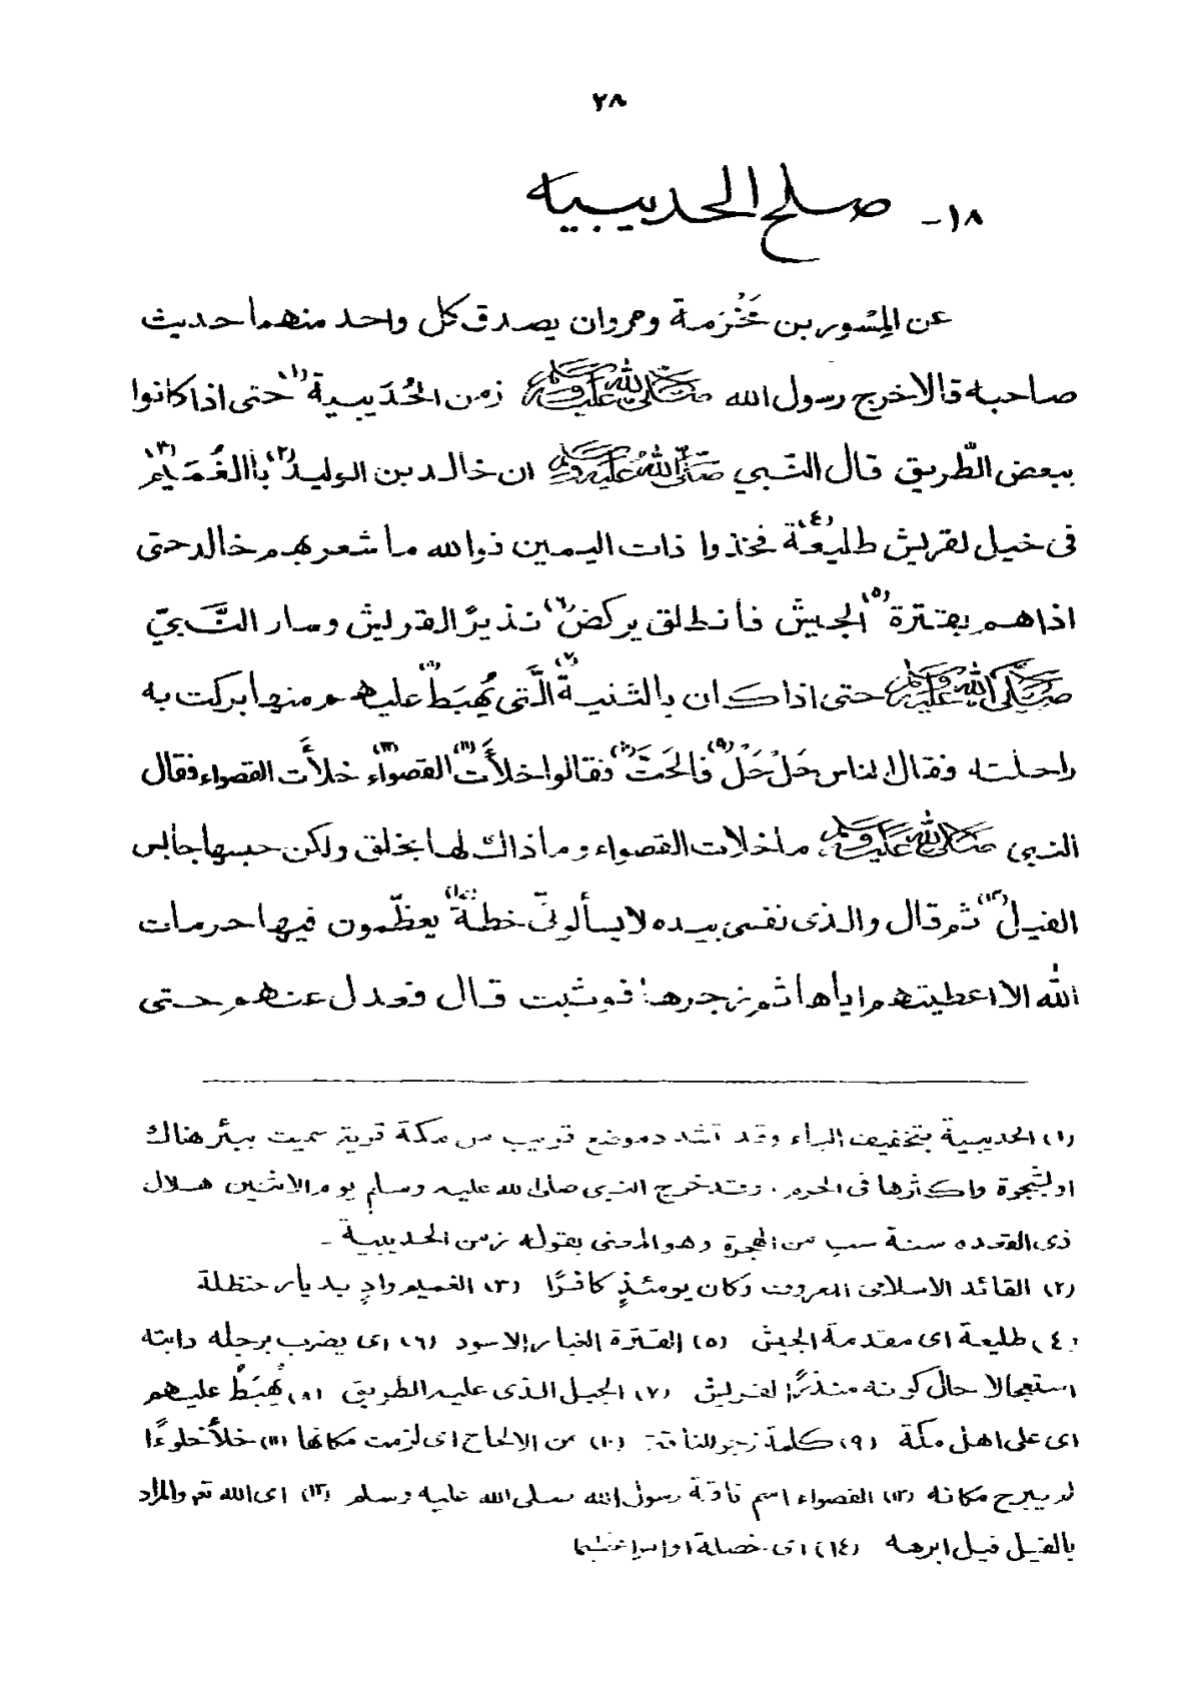 ٢٨
١٨- صلح الحديبيه
عن المِسْوربن مَخْرَمة ومروان يصدق كل واحد منهما حديث
صاحبه قالا خرج رسول الله ﷺ زمن الحُدَيبية(١) حتى اذا كانوا
ببعض الطّريق قال النّبي صَلَّى اللهُ عَلَيْهِ وَسَلَّم ان خالد بن الوليد(٢) بالغُمَيْم(٣)
فى خيل لقريش طليعة(٤) فخذوا ذات اليمين فوالله ما شعر بهم خالد حتى
اذا هم بقترة(٥) الجيش فأنطلق يركض(٦) نذيرًا لقريش وسار النَّبيّ
صَلَّى اللهُ عَلَيْهِ وَسَلَّم حتى اذا كان بالثنية(٧) الَّتى يُهبَط(٨) عليهم منها بركت به
راحلته فقال الناس حَلْ حَلْ(٩) فالحَتَّ(١٠) فقالوا خلأَت(١١) القصواء(١٢) خلأَت القصواء فقال
النبي ﷺ ما خلات القصواء وما ذاك لها بخلق ولكن حبسها حابس
الفيل(١٣) ثم قال والذى نفسى بيده لا يسألونّى خطة(١٤) يعظّمون فيها حرمات
الله الا اعطيتهم اياها ثم زجرها فوثبت قال فعدل عنهم حتى
(١) الحديبية بتخفيف الياء وقد تشدد موضع قريب من مكة قرية سميت ببئر هناك
او لشجرة واكثرها فى الحرم. وقد خرج النبى صلى الله عليه وسلم يوم الاثنين هلال
ذى القعده سنة ست من الهجرة وهو المعنى بقوله زمن الحديبية -
(٢) القائد الاسلامى المعروف وكان يومئذٍ كافرًا (٣) الغميم وادٍ بديار حنظلة
(٤) طليعة اى مقدمة الجيش (٥) القترة الغبار الاسود (٦) اى يضرب برجله دابته
استعجالا حال كونه منذرًا لقريش (٧) الجبل الذى عليه الطريق (٨) يُهبَطُ عليهم
اى على اهل مكة (٩) كلمة زجر للناقة (١٠) من الالحاح اى لزمت مكانها (١١) خلأ خلوءًا
لم يبرح مكانه (١٢) القصواء اسم ناقة رسول الله صلى الله عليه وسلم (١٣) اى الله تعم والمراد
بالفيل فيل ابرهه (١٤) اى خصلة او امرا عظيما